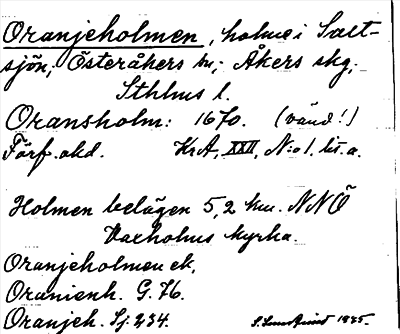 Oranjeholmen, holme i Salt-
sjön; Österåkers sn; Åkers skg;
Sthlms l.
Oransholm: 1670. (vänd!)
Förf. okd. KrA, XXII, N:o 1. lit. a.
Holmen belägen 5,2 km. NNÖ
Vaxholms kyrka.
Oranjeholmen ek,
Oranienh. G. 76.
Oranjeh. Sj. 234.
1935.